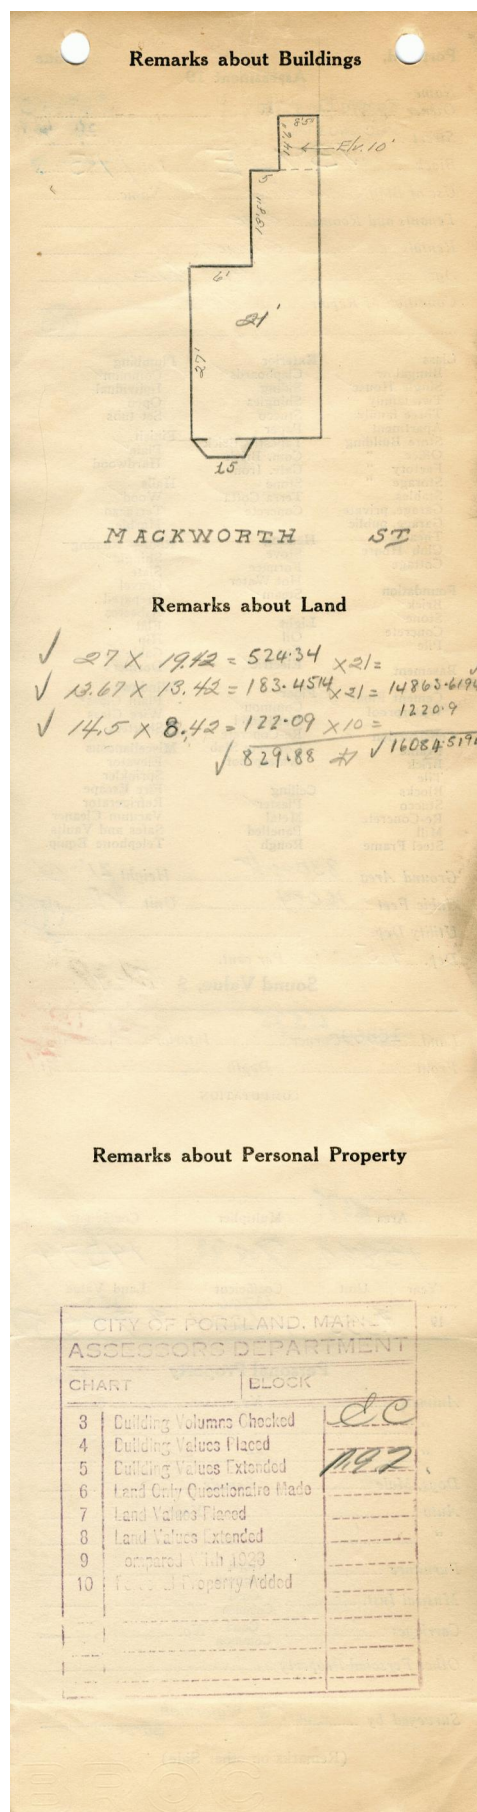 Remarks about Buildings
8'5"
14'6"
Elv. 10'
5
13'8"
6'
21'
27'
15
MACKWORTH ST
Remarks about Land
√ 27 X 19.42 = 524.34 X 21 =
√ 13.67 X 13.42 = 183.4514 X 21 = 14863.6194
√ 14.5 X 8.42 = 122.09 X 10 = 1220.9
√ 829.88 √ 16084.5194
Remarks about Personal Property
CITY OF PORTLAND, MAINE
ASSESSORS DEPARTMENT
CHART BLOCK
3 Building Volumns Checked
4 Building Values Placed
5 Building Values Extended
6 Land Only Questionaire Made
7 Land Values Placed
8 Land Values Extended
9 Compared With 1923
10 Personal Property Added